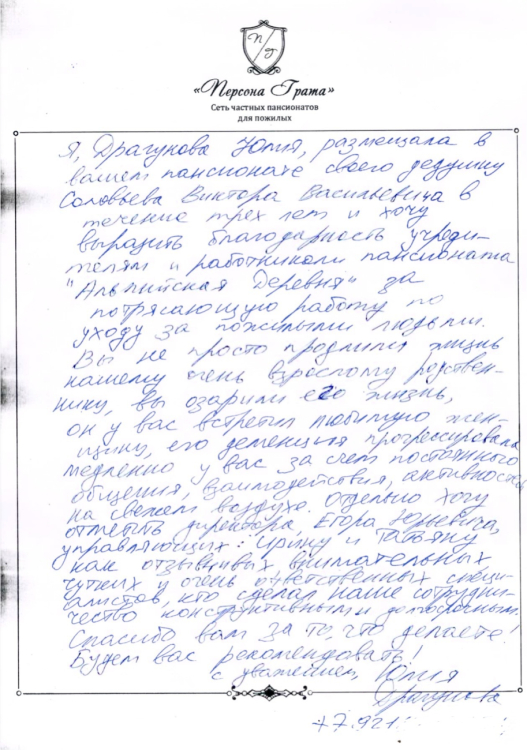 «Персона Грата»
Сеть частных пансионатов
для пожилых
Я, Драгунова Юлия, размещала в
вашем пансионате своего дедушку
Соловьева Виктора Васильевича в
течение трех лет и хочу
выразить благодарность учреди-
телям и работникам пансионата
"Альпийская Деревня" за
потрясающую работу по
уходу за пожилыми людьми.
Вы не просто продлили жизнь
нашему очень взрослому родствен-
нику, вы озарили его жизнь,
он у вас встретил любимую жен-
щину, его деменция прогрессировала
медленно у вас за счет постоянного
общения, взаимодействия, активностей
на свежем воздухе. Отдельно хочу
отметить директора, Егора Юрьевича,
управляющих: Ирину и Татьяну
как отзывчивых, внимательных
чутких и очень ответственных специ-
алистов, кто сделал наше сотрудни-
чество конструктивным и долгосрочным.
Спасибо вам за то, что делаете!
Будем вас рекомендовать!
с уважением, Юлия
Драгунова
+7.921